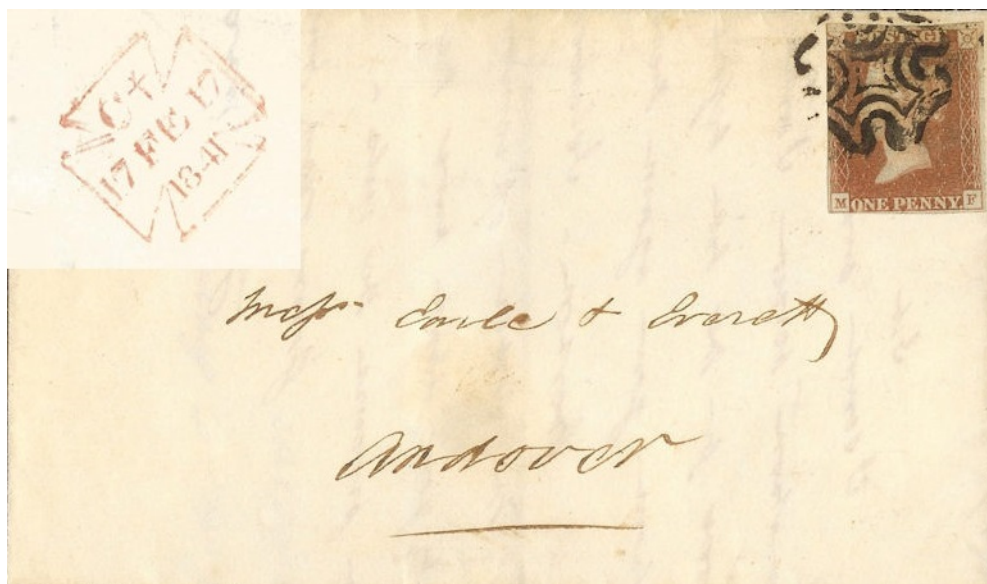 C+
17 FE 17
1841
POSTAGE
M ONE PENNY F
Messrs Earle & Everett
Andover